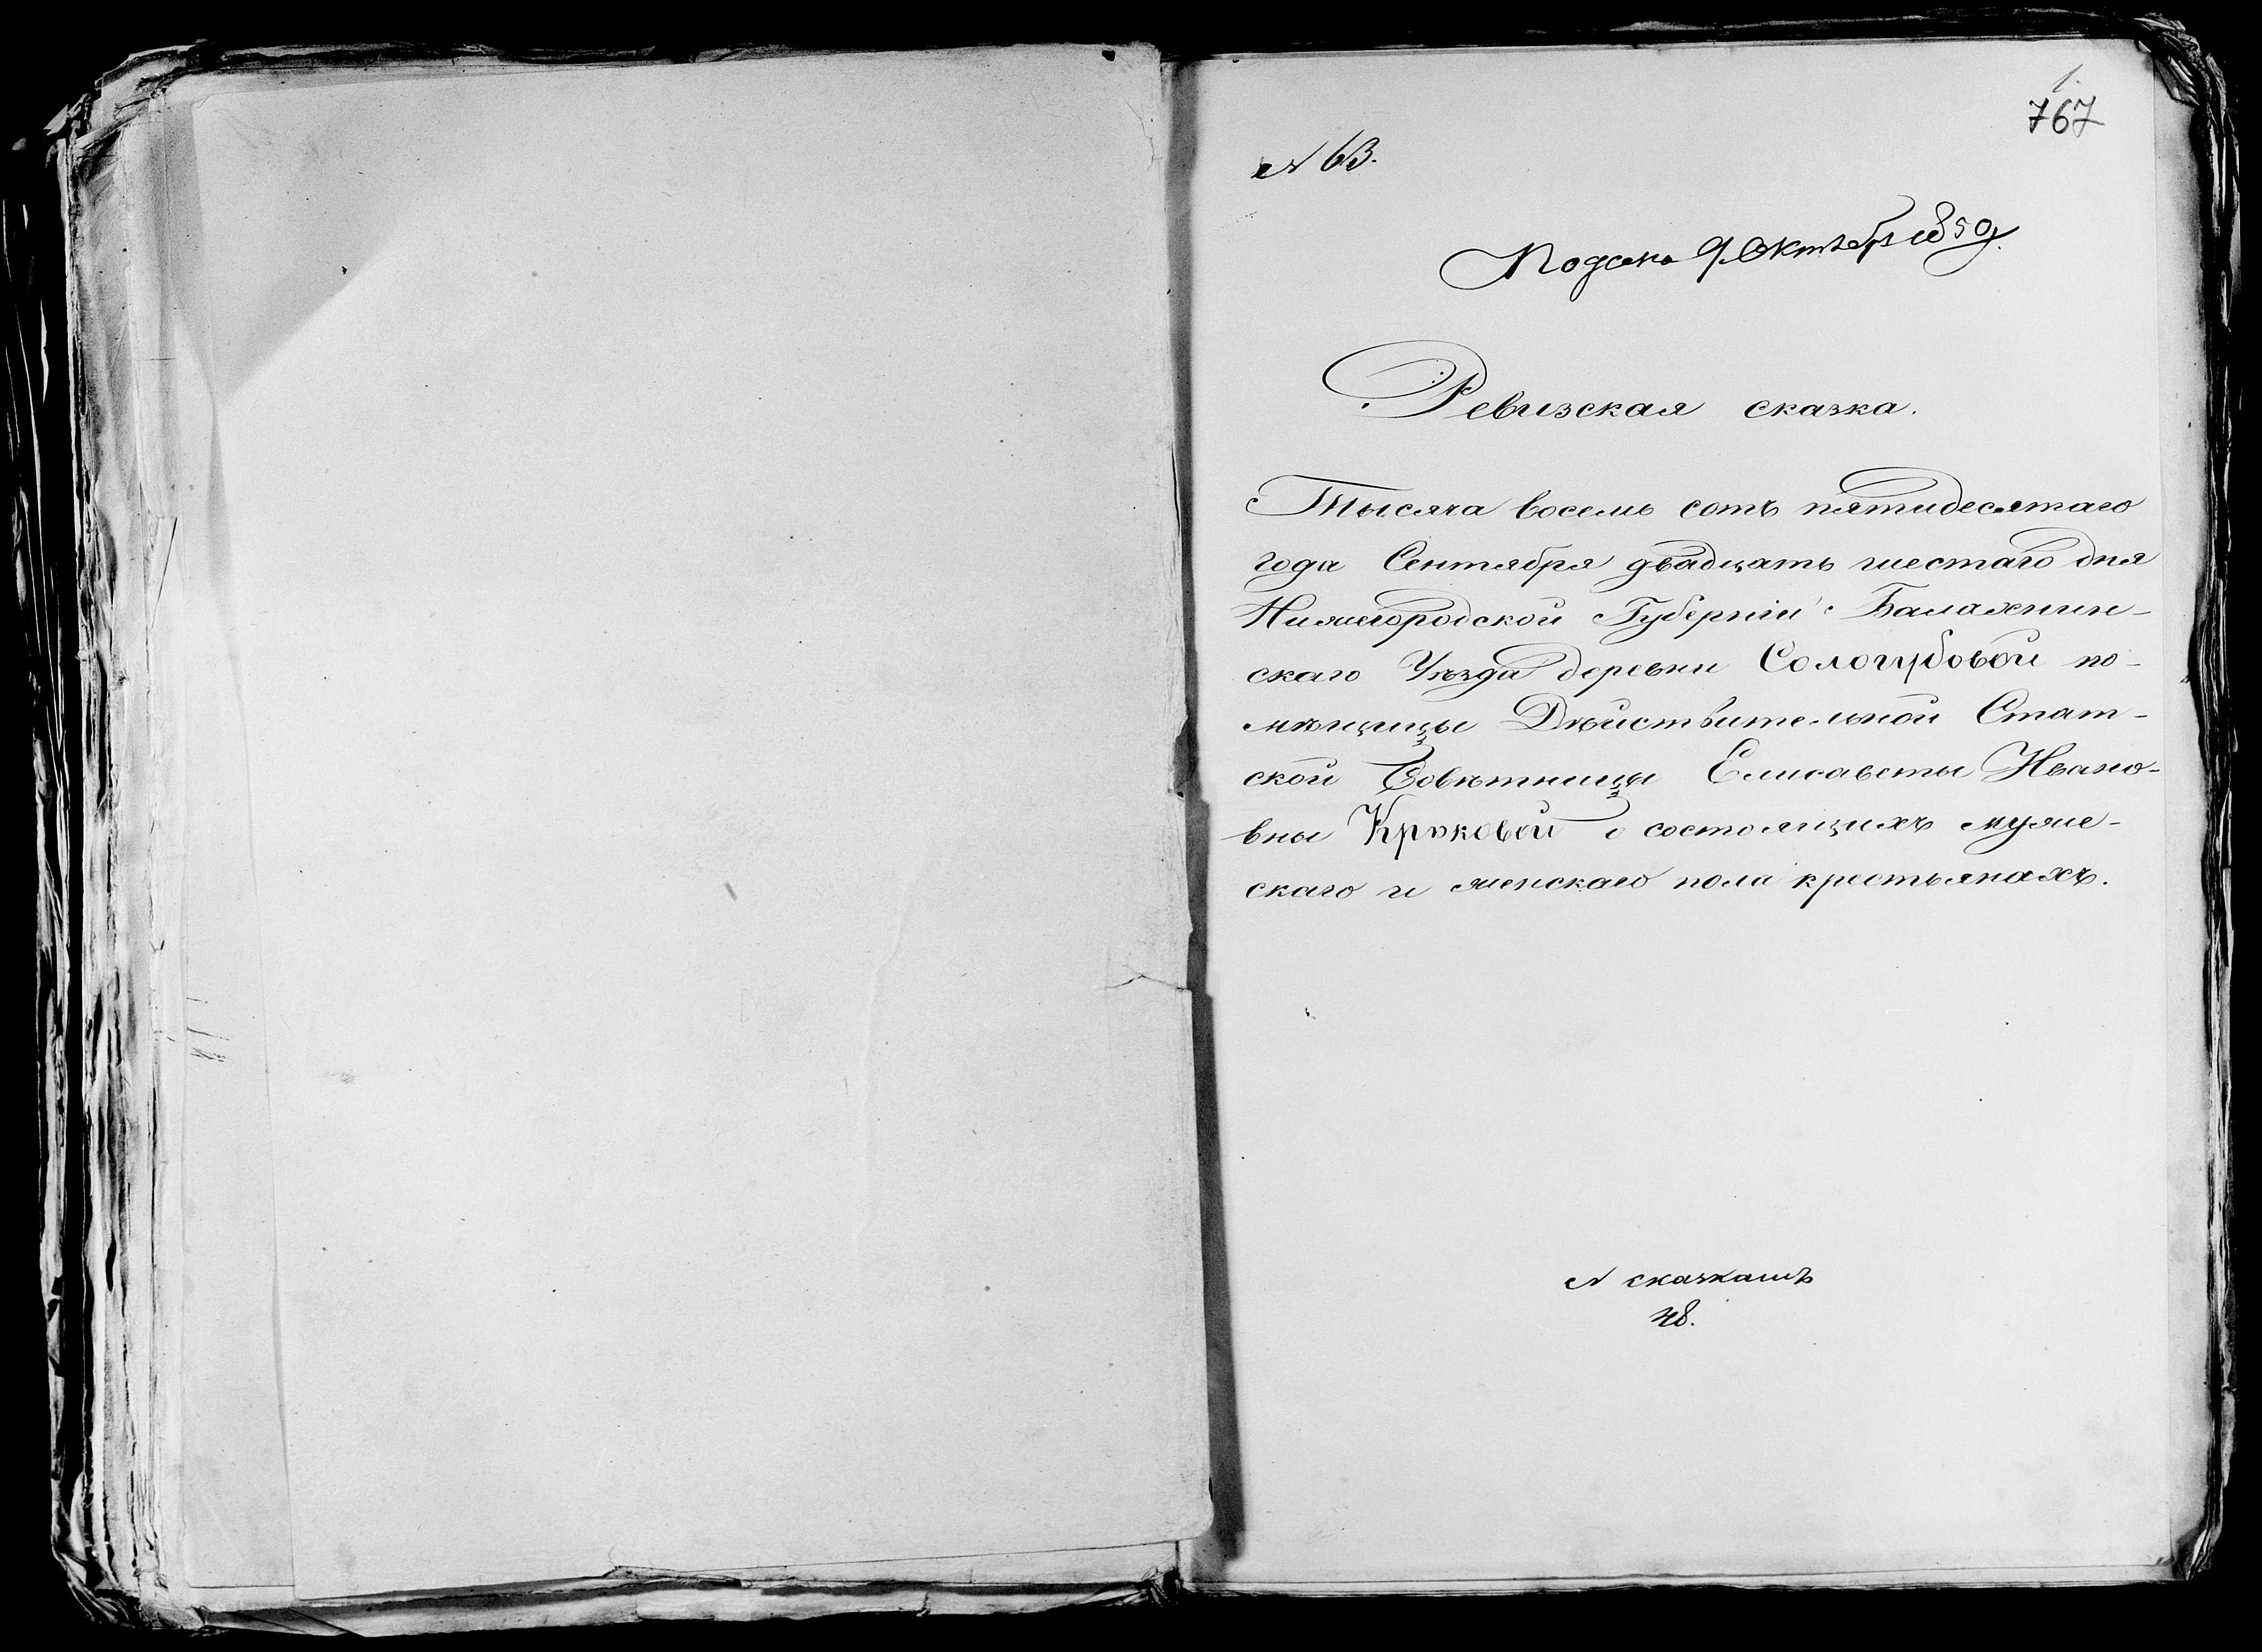 1.
767
№ 63.
Подана 9 Октября 1850 г.
Ревизская сказка.
Тысяча восемь сотъ пятидесятаго
года Сентября двадцать шестаго дня
Нижегородской Губерніи Балахнин-
скаго Уѣзда деревни Сологубовой по-
мѣщицы Дѣйствительной Стат-
ской Совѣтницы Елисаветы Ивано-
вны Крюковой о состоящихъ муже-
скаго и женскаго пола крестьянахъ.
№ сказкамъ
48.